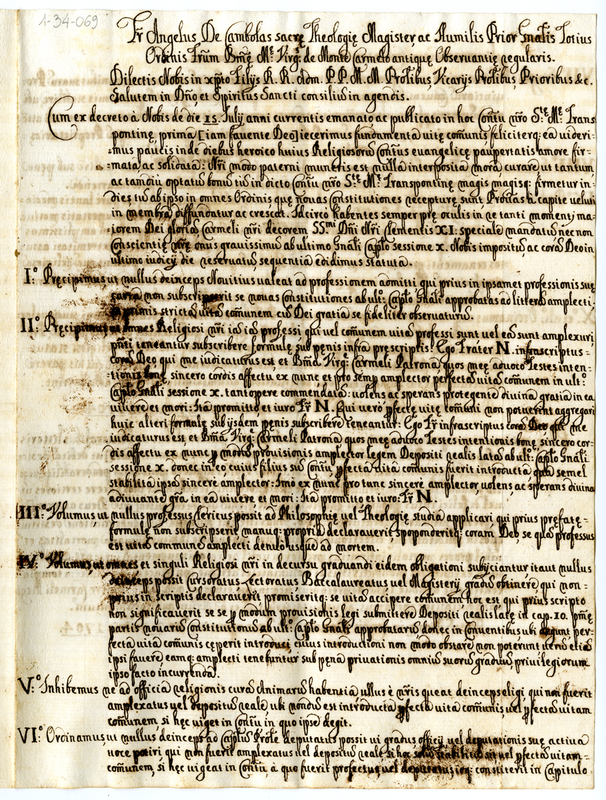 1-34-069
Fr Angelus De Cambolas sacrę Theologię Magister, ac Humilis Prior Gnalis Totius
Ordinis Frum Bmę Mę Virg. de Monte Carmelo antiquę Observantię regularis.
Dilectis Nobis in xpto Filijs R.R. Adm. P.P. M.M. Prolibus, Vicarijs Prolibus, Prioribus &c.
Salutem in Dno et Spiritus Sancti consilium in agendis.
Cum ex decreto à Nobis de die 15. Julij anni currentis emanato ac publicato in hoc Contu nro S. M. Trans
pontinę, prima [iam fauente Deo] iecerimus fundamenta uitę comunis, feliciterq. ea uideri-
mus paucis inde diebus heroico huius Religiosorum Contus euangelicę paupertatis amore fir-
mata, ac solidata: Nri modo paterni muneris est nulla interposita mora curare ut tantum
ac tamdiu optatum bonum in dicto Contu nro Stę Mę Transpontinę magis magisq. firmetur in
dies, tum ab ipso in omnes Ordinis que nouas constitutiones recepturę sunt Prouincias à capite ueluti
in membra diffundatur ac crescat. Idcirco habentes semper prę oculis in re tanti momenti ma-
iorem Dei gloriam Carmeli nri decorem SSmi Dni Nri Clementis XI. speciale mandatum nec non
conscientię nrę onus grauissimum ab ultimo Gnali Caplo sessione X. Nobis impositum ac coram Deo in
ultimo iudicij die reseruatum sequentia edidimus statuta.
I.º Pręcipimus ut nullus deinceps Nouitius ualeat ad professionem admitti qui prius in ipsamet professionis suę
non subscripserit se nouas constitutiones ab ult. Caplo Gnali approbatas ad litteram amplecti,
in primis strictam uitę comunem cum Dei gratia se fideliter obseruaturum.
II.º Pręcipimus ut omnes Religiosi nri iam iam professi qui uel comunem uitam professi sunt uel eam sunt amplexuri
pnti teneantur subscribere formulę sub pęnis infra pręscriptis: Ego Frater N. infrascriptus
coram Deo qui me iudicaturus est et Bma Virg. Carmeli Patrona quos meę aduoco Testes inten-
tionis bonę sincero cordis affectu ex nunc et pro semp amplector perfectam uitam comunem in ult.
Caplo Gnali sessione X. tantopere commendatam: uolens ac sperans protegente diuina gratia in ea
uiuere et mori: Ita promitto et iuro Fr N. Qui uero pfectę uitę comuni non potuerint aggregari
huic alteri formulę sub ijsdem pęnis subscribere teneantur: Ego Fr infrascriptus coram Deo qui me
iudicaturus est et Bma Virg. Carmeli Patrona quos meę aduoco Testes intentionis bonę, sincero cor-
dis affectu ex nunc p modum prouisionis amplector legem Depositi realis latam ab ult. Caplo Gnali
sessione X. donec in eo cuius filius sum Contu pfecta uita comunis fuerit introducta quam semel
stabilitam ipsam sincerè amplectar: Imò ex nunc pro tunc sincerè amplector uolens ac sperans diuina
adiuuante gra. in ea uiuere et mori: Ita promitto et iuro. Fr N.
III.º Volumus, ut nullus professus clericus possit ad Philosophię uel Theologię studia applicari qui prius prefatę
formulę non subscripserit manuq. propria declarauerit spoponderitq. coram Deo se quam professus
est uitam communem amplecti denuò usque ad mortem.
IV.º Volumus, ut omnes et singuli Religiosi nri in decursu graduandi eidem obligationi subijciantur ita ut nullus
deinceps possit cursoratus Lectoratus Baccalaureatus uel Magisterij gradum obtinere qui non
prius in scriptis declarauerit promiseritq. se uitam accipere comunem hoc est qui prius scripto
non significauerit se se p modum prouisionis legi submittere Depositi realis latę in cap. 10. pmę
partis nouarum constitutionum ab ult. Caplo Gnali approbatarum donec in Conuentibus ubi degunt per-
fecta uita comunis cęperit introduci cuius introductioni non modo obstare non poterunt uerum etiam
ipsi fauere eamq. amplecti tenebuntur sub pęna priuationis omnium suorum graduum priuilegiorum
ipso facto incurrenda.
V.º Inhibemus ne ad officia religionis curam Animarum habentia ullus è nris queat deinceps eligi qui non fuerit
amplexatus uel depositum reale ubi nondum est introducta pfecta uita comunis uel pfectam uitam
comunem, si hęc uiget in Contu in quo ipse degit.
VI.º Ordinamus ut nullus deinceps ad Caplum Prole deputatus possit ui gradus officij uel deputationis suę actiua
uoce potiri qui non fuerit amplexatus uel depositum reale si hoc solum stabilitum sit uel pfectam uitam
comunem, si hęc uigeat in Contu, à quo fuerit profectus uel deputatus; idq. constiterit in Capitulo